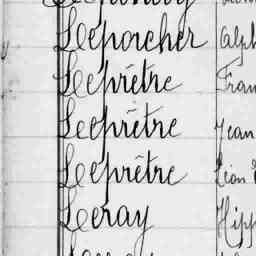 Leporcher Alph
Leprêtre Fran
Leprêtre Jean
Leprêtre Léon
Leray Hipp